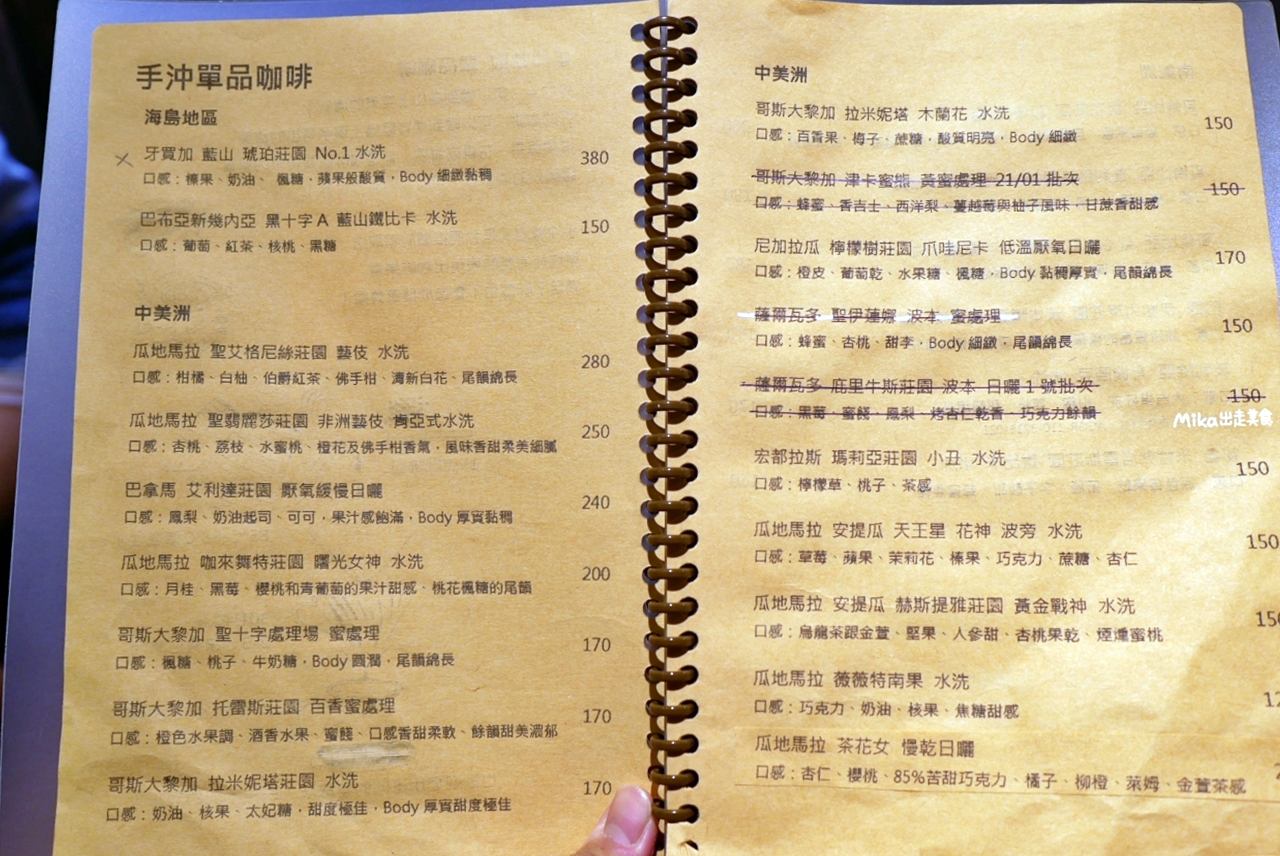 手沖單品咖啡
海島地區
牙買加 藍山 琥珀莊園 No.1 水洗 380
口感：榛果、奶油、 楓糖，蘋果般酸質，Body 細緻黏稠
巴布亞新幾內亞 黑十字 A 藍山鐵比卡 水洗 150
口感：葡萄、紅茶、核桃、黑糖
中美洲
瓜地馬拉 聖艾格尼絲莊園 藝伎 水洗 280
口感：柑橘、白柚、伯爵紅茶、佛手柑、清新白花、尾韻綿長
瓜地馬拉 聖翡麗莎莊園 非洲藝伎 肯亞式水洗 250
口感：杏桃、荔枝、水蜜桃、橙花及佛手柑香氣，風味香甜柔美細膩
巴拿馬 艾利達莊園 厭氧緩慢日曬 240
口感：鳳梨、奶油起司、可可，果汁感飽滿，Body 厚實黏稠
瓜地馬拉 咖來舞特莊園 曙光女神 水洗 200
口感：月桂、黑莓、櫻桃和青葡萄的果汁甜感、桃花楓糖的尾韻
哥斯大黎加 聖十字處理場 蜜處理 170
口感：楓糖、桃子、牛奶糖，Body 圓潤，尾韻綿長
哥斯大黎加 托雷斯莊園 百香蜜處理 170
口感：橙色水果調、酒香水果、蜜餞、口感香甜柔軟、餘韻甜美濃郁
哥斯大黎加 拉米妮塔莊園 水洗 170
口感：奶油、核果、太妃糖，甜度極佳，Body 厚實甜度極佳
中美洲
哥斯大黎加 拉米妮塔 木蘭花 水洗 150
口感：百香果、梅子、蔗糖，酸質明亮，Body 細緻
哥斯大黎加 津卡蜜熊 黃蜜處理 21/01 批次 150
口感：蜂蜜、香吉士、西洋梨、蔓越莓與柚子風味，甘蔗香甜感
尼加拉瓜 檸檬樹莊園 爪哇尼卡 低溫厭氧日曬 170
口感：橙皮、葡萄乾、水果糖、楓糖，Body 黏稠厚實，尾韻綿長
薩爾瓦多 聖伊蓮娜 波本 蜜處理 150
口感：蜂蜜、杏桃、甜李，Body 細緻，尾韻綿長
薩爾瓦多 庇里牛斯莊園 波本 日曬 1 號批次 150
口感：黑莓、蜜餞、鳳梨、烤杏仁乾香、巧克力餘韻
Mika出走美食
宏都拉斯 瑪莉亞莊園 小丑 水洗 150
口感：檸檬草、桃子、茶感
瓜地馬拉 安提瓜 天王星 花神 波旁 水洗 150
口感：草莓、蘋果、茉莉花、榛果、巧克力、蔗糖、杏仁
瓜地馬拉 安提瓜 赫斯提雅莊園 黃金戰神 水洗 150
口感：烏龍茶跟金萱、堅果、人參甜、杏桃果乾、煙燻蜜桃
瓜地馬拉 薇薇特南果 水洗
口感：巧克力、奶油、核果、焦糖甜感
瓜地馬拉 茶花女 慢乾日曬
口感：杏仁、櫻桃、85%苦甜巧克力、橘子、柳橙、萊姆、金萱茶感